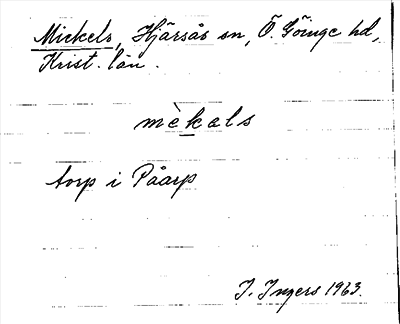 Mickels, Hjärsås sn, Ö. Göinge hd,
Krist. län.
mèkals
torp i Påarp
I. Ingers 1963.